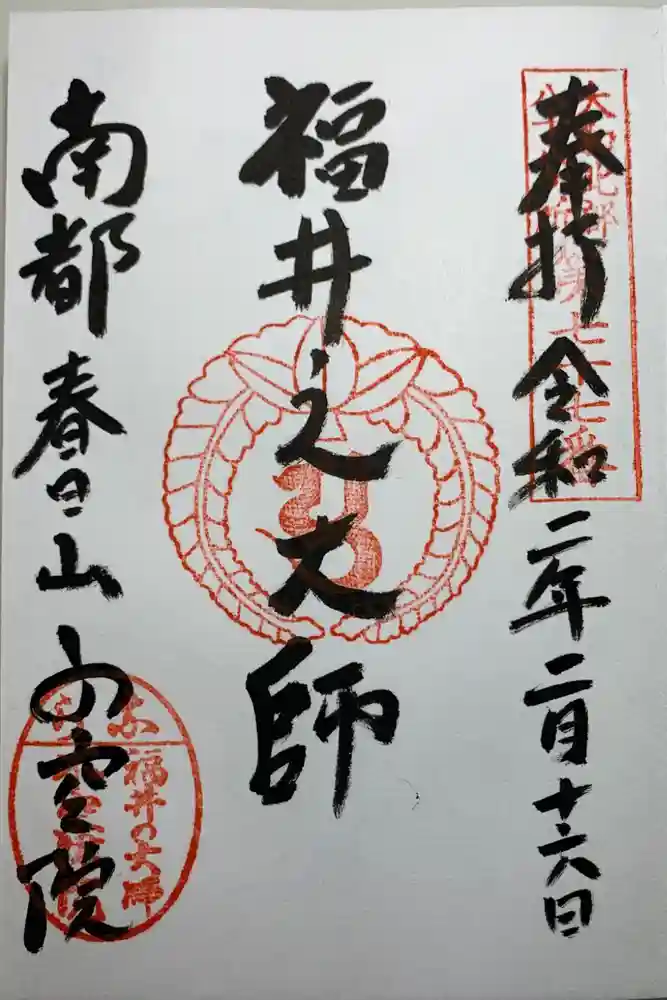 奉拝 令和二年二月十六日
福井之大師
南都 春日山 不空院
福井の大師